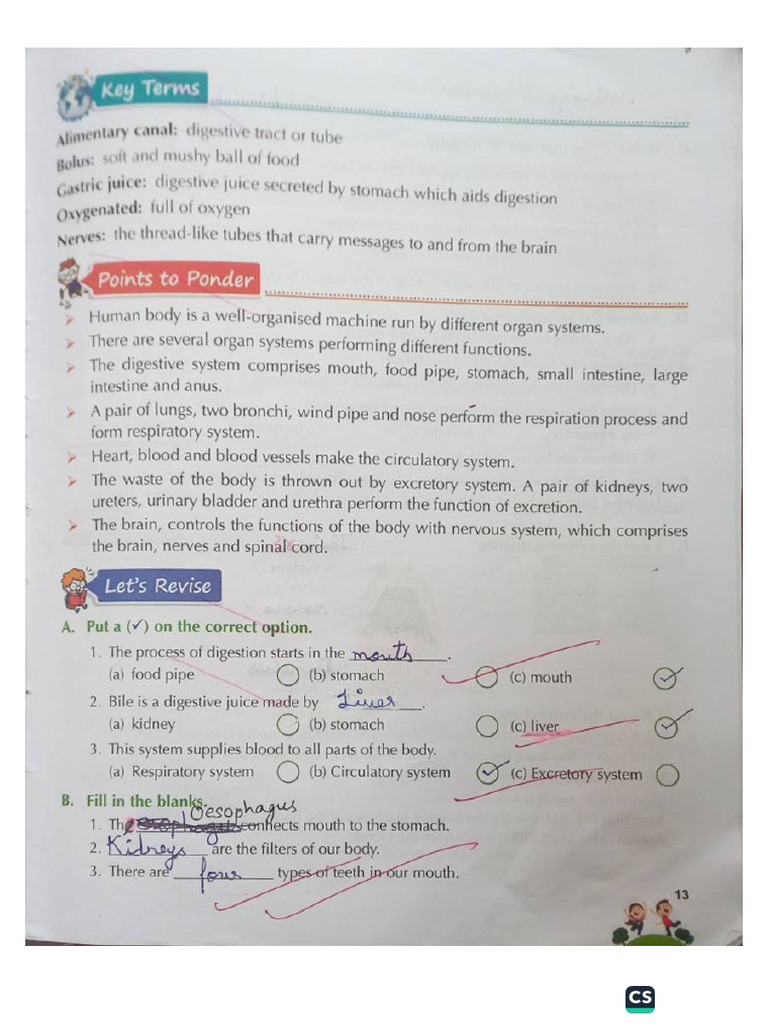 Key Terms
Alimentary canal: digestive tract or tube
Bolus: soft and mushy ball of food
Gastric juice: digestive juice secreted by stomach which aids digestion
Oxygenated: full of oxygen
Nerves: the thread-like tubes that carry messages to and from the brain
Points to Ponder
➤ Human body is a well-organised machine run by different organ systems.
➤ There are several organ systems performing different functions.
➤ The digestive system comprises mouth, food pipe, stomach, small intestine, large
intestine and anus.
➤ A pair of lungs, two bronchi, wind pipe and nose perform the respiration process and
form respiratory system.
➤ Heart, blood and blood vessels make the circulatory system.
➤ The waste of the body is thrown out by excretory system. A pair of kidneys, two
ureters, urinary bladder and urethra perform the function of excretion.
➤ The brain, controls the functions of the body with nervous system, which comprises
the brain, nerves and spinal cord.
Let's Revise
A. Put a (✓) on the correct option.
1. The process of digestion starts in the mouth.
(a) food pipe (b) stomach (c) mouth ✓
2. Bile is a digestive juice made by Liver.
(a) kidney (b) stomach (c) liver ✓
3. This system supplies blood to all parts of the body.
(a) Respiratory system (b) Circulatory system ✓ (c) Excretory system
B. Fill in the blanks.
1. The Oesophagus connects mouth to the stomach.
2. Kidneys are the filters of our body.
3. There are four types of teeth in our mouth.
13
CS